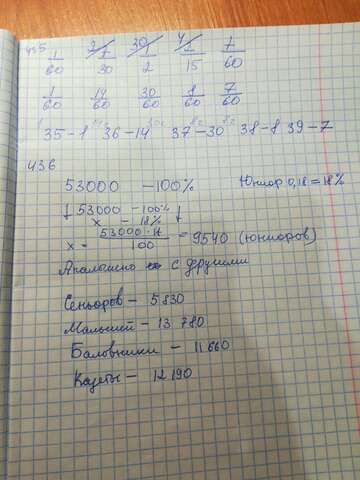 435
1/60 2/7/30 30/1/2 4/15 7/60
1/60 14/60 30/60 8/60 7/60
35-1 36-14 37-30 38-8 39-7
436
53000 - 100% Юниор 0,18 = 18%
↓ 53000 - 100% ↓
x - 18%
x = 53000·18/100 = 9540 (юниоров)
Аналогично с другими
Сеньоров - 5830
Малышей - 13 780
Баловники - 11 660
Кадеты - 12 190